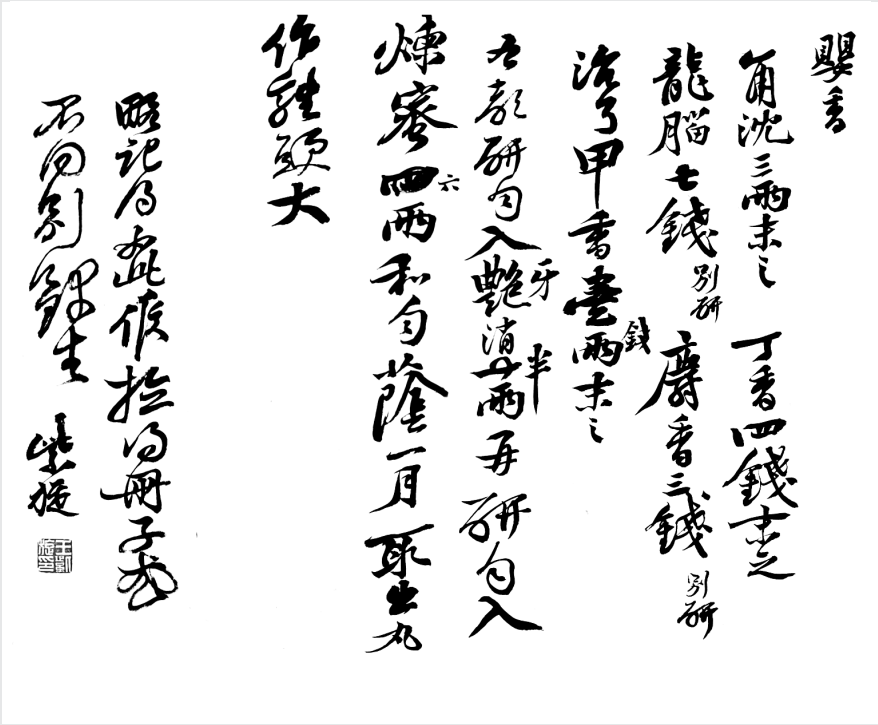 嬰香
角沈三兩末之 丁香四錢末之
龍腦七錢別研 麝香三錢別研
治弓甲香壹兩錢末之
右都研勻入艷牙消半兩再研勻入
煉蜜四六兩和勻蔭一月取出丸
作雞頭大
略記得如此候檢得冊子或
不同別錄去